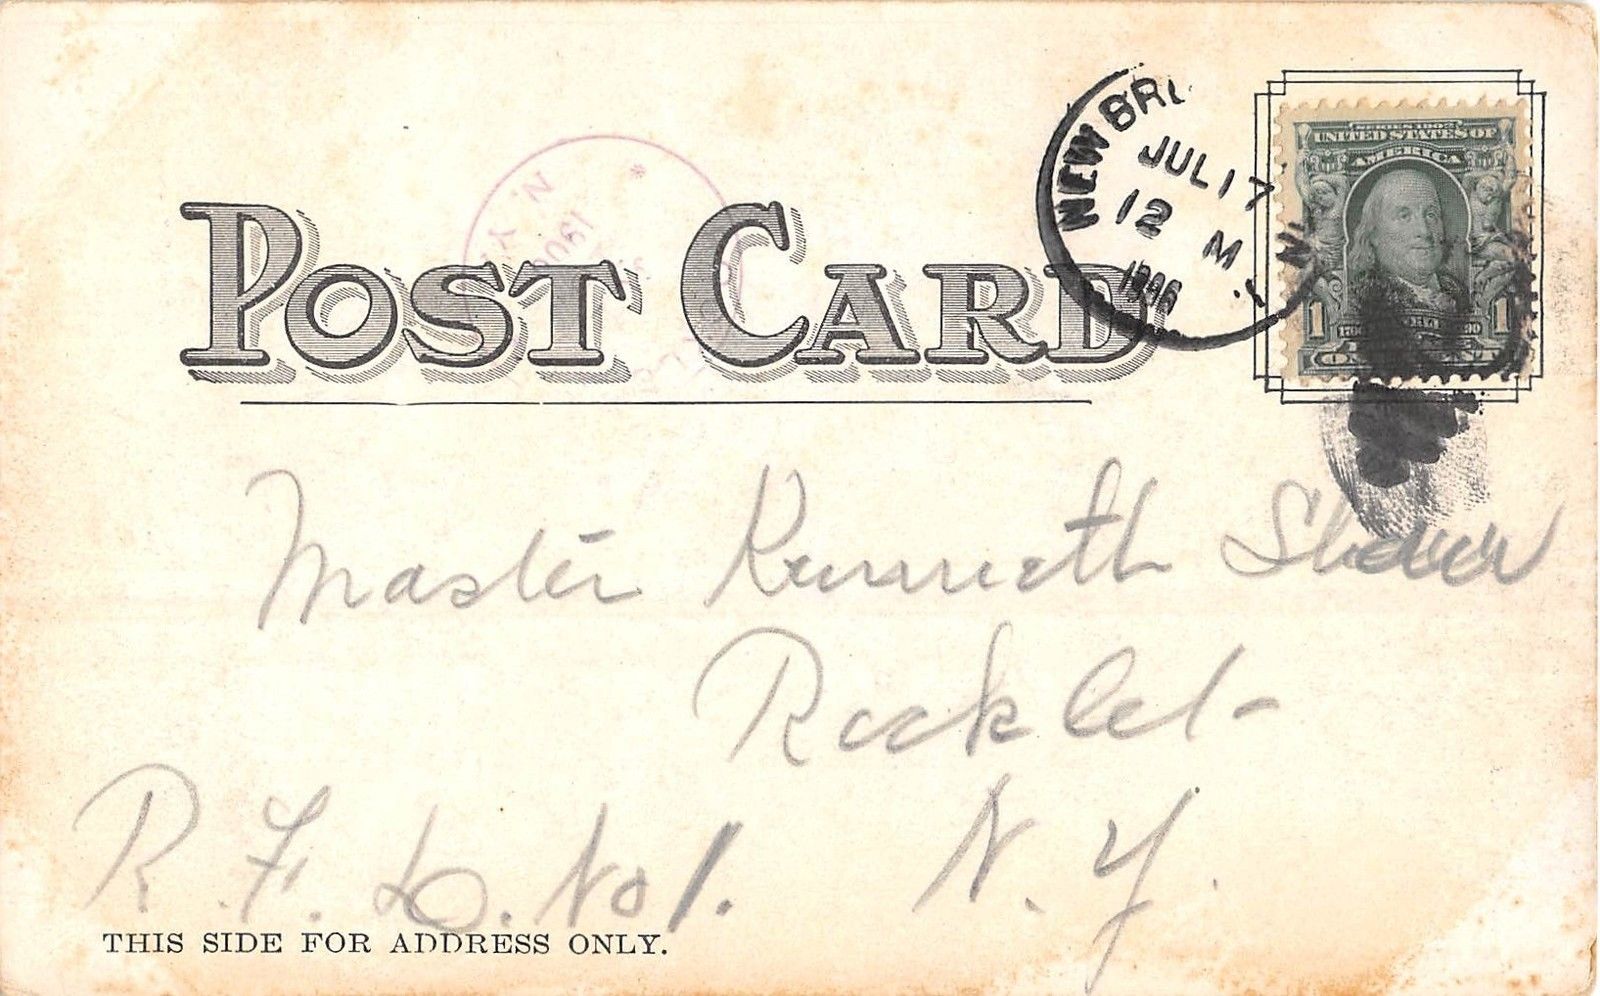 NEW BRI
JUL 17
12 M
1906
N.Y.
SERIES 1902
UNITED STATES OF
AMERICA
1 1
N. Y.
POST CARD
Master Kenneth Shaver
R. F. D. No 1. N. Y.
THIS SIDE FOR ADDRESS ONLY.